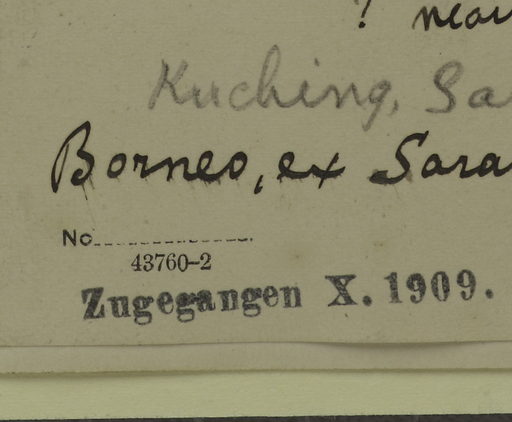 ? near
Kuching, Sa
Borneo, ex Sara
No
43760-2
Zugegangen X. 1909.